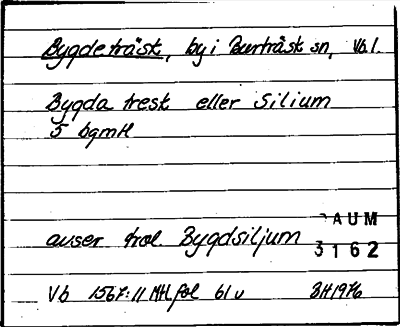 Bygdeträsk, by i Burträsk sn, Vb.l.
Bygda tresk eller Silium
5 bgmH
avser trol. Bygdsiljum
DAUM
3162
Vb 1567:11 MH fol 61v BH1976